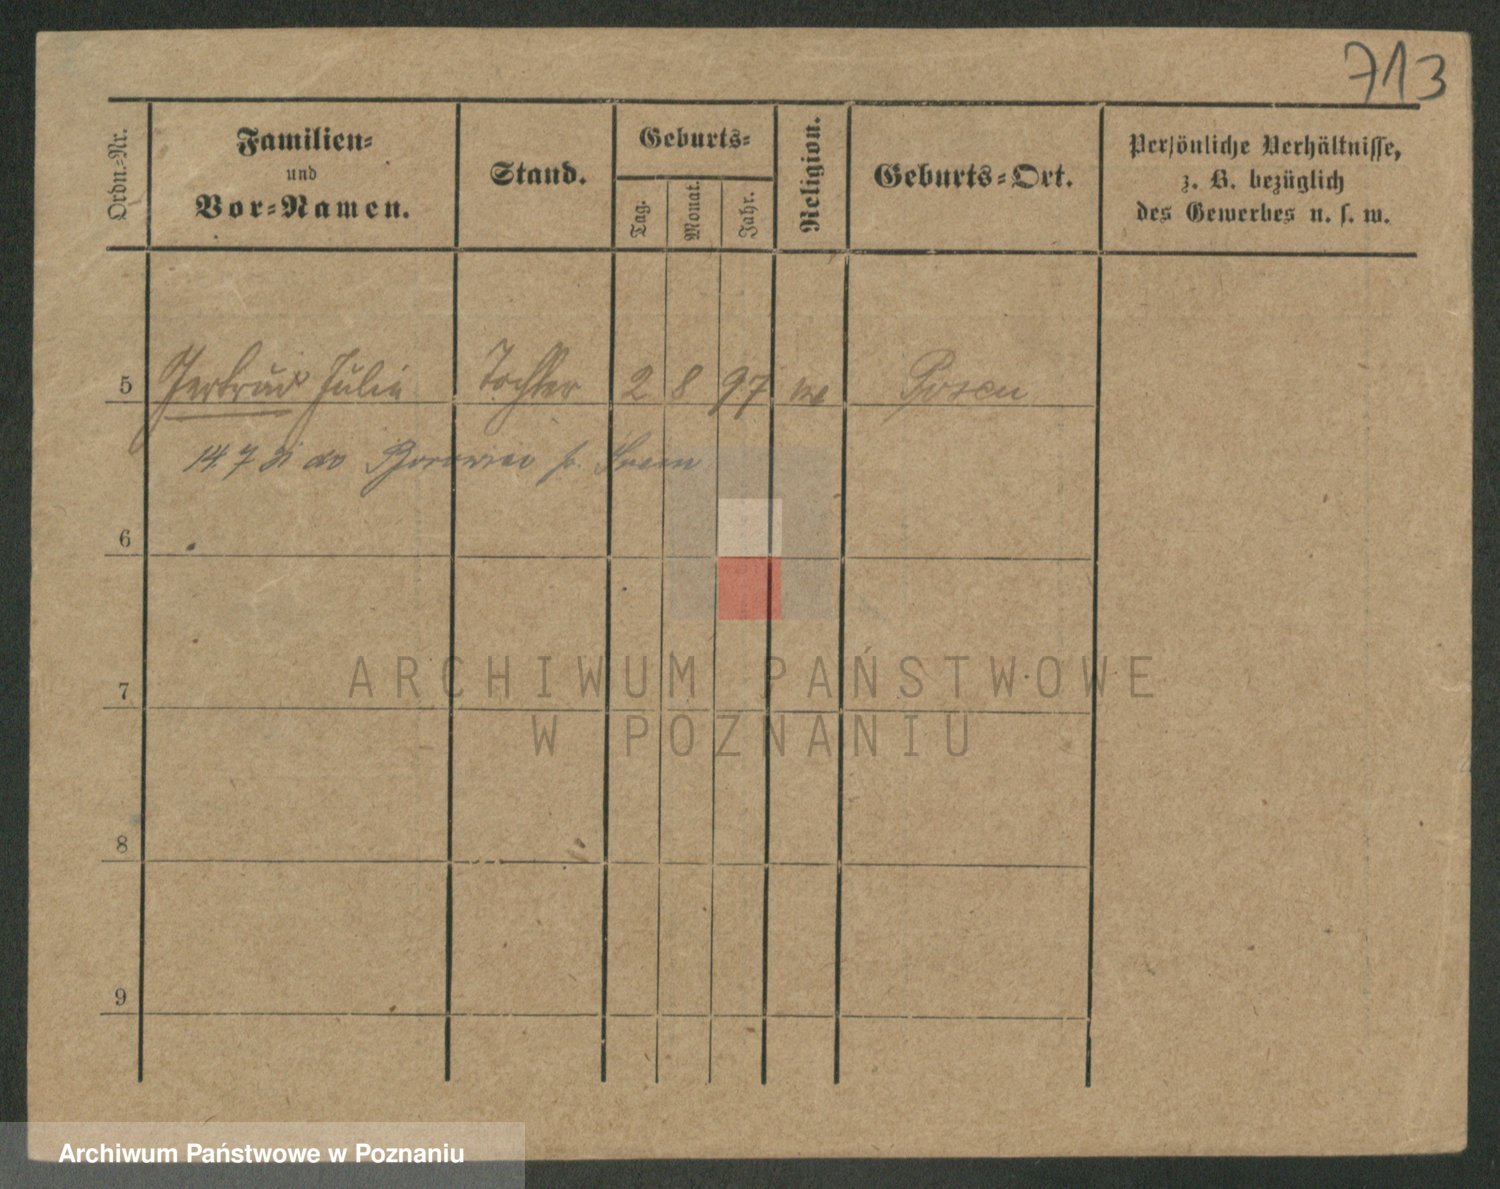 713
Ordn.-Nr.
Familien-
und
Vor-Namen.
Stand.
Geburts-
Tag.
Monat.
Jahr.
Religion.
Geburts-Ort.
Persönliche Verhältnisse,
z. B. bezüglich
des Gewerbes u. s. w.
5 Gertrud Julie Tochter 2 8 97 Posen
14. 7 21 do Borowiec p. Śrem
6
7
8
9
ARCHIWUM PAŃSTWOWE
W POZNANIU
Archiwum Państwowe w Poznaniu